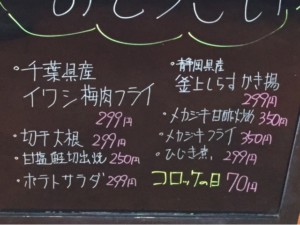 ・千葉県産
イワシ梅肉フライ
299円
・切干大根 299円
・甘塩鮭切出焼 250円
・ポテトサラダ 299円
・静岡県産
釜上しらすかき揚
299円
・メカジキ甘酢炒め 350円
・メカジキフライ 350円
・ひじき煮 299円
コロッケの日 70円